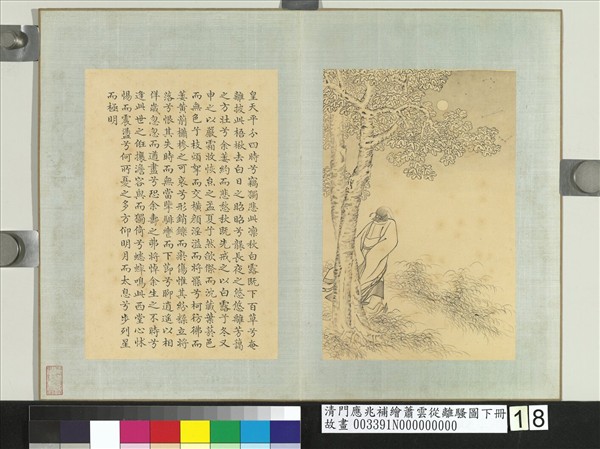 皇天平分四時兮竊獨悲此凜秋白露既下百草兮奄
離披此梧楸去白日之昭昭兮襲長夜之悠悠離芳藹
之方壯兮余萎約而悲愁秋既先戒之以白露兮冬又
申之以嚴霜收恢台之孟夏兮然欿傺而沉藏葉菸邑
而無色兮枝煩挐而交橫顏淫溢而將罷兮柯彷彿而
萎黃萷櫹槮之可哀兮形銷鑠而瘀傷惟其紛糅而將
落兮恨其失時而無當攬騑轡而下節兮聊逍遙以相
佯歲忽忽而遒盡兮恐余壽之弗將悼余生之不時兮
逢此世之俇攘澹容與而獨倚兮蟋蟀鳴此西堂心怵
惕而震盪兮何所憂之多方仰明月而太息兮步列星
而極明
清門應兆補繪蕭雲從離騷圖下冊
故畫 003391N000000000
18